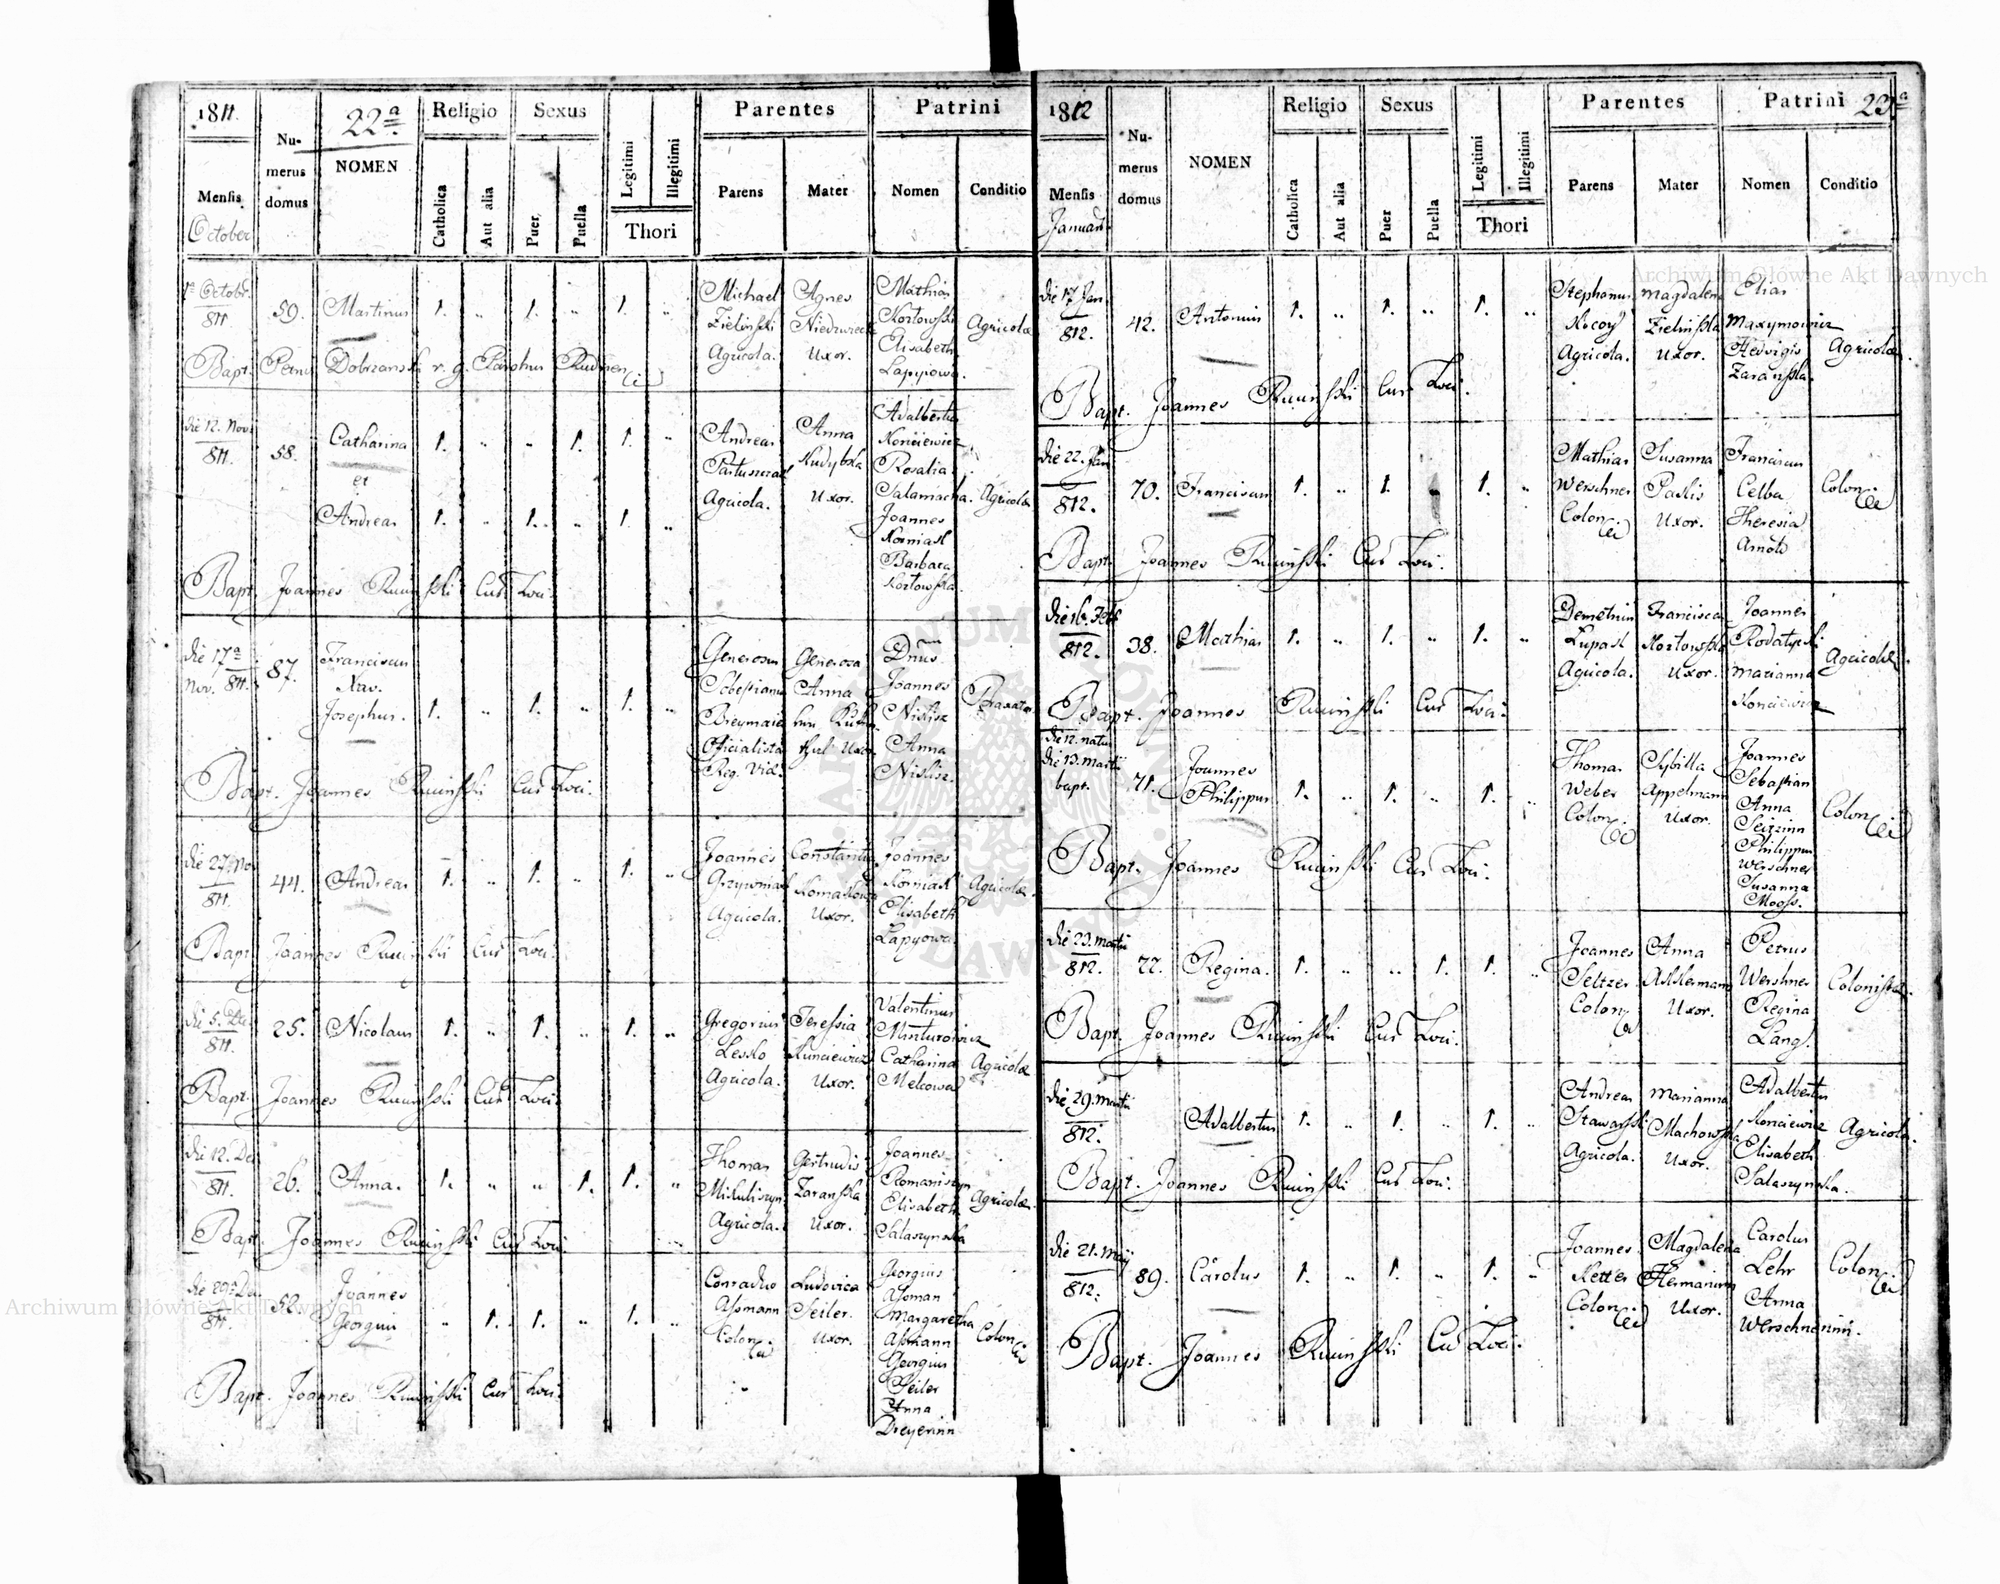 1811.
22a
Religio
Sexus
Parentes
Patrini
Nu-
merus
domus
NOMEN
Mensis
October
Catholica
Aut alia
Puer
Puella
Legitimi
Illegitimi
Thori
Parens
Mater
Nomen
Conditio
1a Octobr.
811
59.
Martinus
1.
1.
1.
Michael
Zielinski
Agricola.
Agnes
Uxor.
Mathias
Kozłowski
Elisabeth
Łapyowa.
Agricolae
Bapt. Petrus Dobrzanski r. g. Parohus
die 12. Nov.
811.
58.
Catharina
et
Andreas
1. 1. 1.
1. 1. 1.
Andreas
Agricola.
Anna
Uxor.
Adalbertus
Konciewicz
Rosalia
Salamacha.
Joannes
Korniak
Barbara
Kozłowska.
Agricolae
Bapt. Joannes Cur Loci.
die 17a
Nov. 811.
87.
Franciscus
Xav.
Josephus.
1. 1. 1.
Generosus
Sebestianus
Officialista
Reg. Viae.
Generosa
Anna
Dnus
Joannes
Nislisz
Anna
Nislisz.
Bapt. Joannes Cur Loci.
die 27. Nov
811.
44.
Andreas
1. 1. 1.
Joannes
Agricola.
Constantia
Uxor.
Joannes
Korniak
Elisabeth
Łapyowa
Agricolae
Bapt. Joannes Cur Loci.
die 5. Dec
811.
25.
Nicolaus
1. 1. 1.
Gregorius
Lesko
Agricola.
Teressia
Kunciewicz
Uxor.
Valentinus
Catharina
Melcowa
Agricolae
Bapt. Joannes Cur Loci.
die 12. Dec
811.
26.
Anna.
1. 1. 1.
Thomas
Mikuliszyn
Agricola.
Gertrudis
Zaranska
Uxor.
Joannes
Romaniszyn
Elisabeth
Salaszynska
Agricolae
Bapt. Joannes Cur Loci
die 29a Dec
811.
52.
Joannes
Georgius
1. 1. 1.
Conradus
Assmann
Colon.
Ludovica
Seiler.
Uxor.
Georgius
Assman
Margaretha
Assmann
Georgius
Seiler
Anna
Dreyerinn
Colon
Bapt. Joannes Cur Loci.
1812
23a
Religio
Sexus
Parentes
Patrini
Nu-
merus
domus
NOMEN
Mensis
Januar.
Catholica
Aut alia
Puer
Puella
Legitimi
Illegitimi
Thori
Parens
Mater
Nomen
Conditio
die 17 Jan.
812.
42.
Antonius
1. 1. 1.
Stephanus
Kocoy
Agricola.
Magdalena
Zielinska
Uxor.
Elias
Maxymowicz
Hedvigis
Zaranska.
Agricolae.
Bapt. Joannes Cur Loci.
die 22. Jan
812.
70.
Franciscus
1. 1. 1.
Mathias
Werschner
Colon.
Susanna
Uxor.
Franciscus
Celba
Theresia
Arnoth
Colon.
Bapt. Joannes Cur Loci.
die 16. Feb
812.
38.
Mathias
1. 1. 1.
Demetrius
Łupask
Agricola.
Francisca
Kozłowska
Uxor.
Joannes
Rodatycki
Marianna
Konciewicz
Agricolae.
Bapt. Joannes Cur Loci.
die 12. natus
die 13. Martii
bapt.
71.
Joannes
Philippus
1. 1. 1.
Thomas
Weber
Colon.
Sybilla
Appelmann
Uxor.
Joannes
Sebastian
Anna
Seizinn
Philippus
Werschner
Susanna
Mogs.
Colon.
Bapt. Joannes Cur Loci.
die 23. Martii
812.
77.
Regina.
1. 1. 1.
Joannes
Seltzer
Colon.
Anna
Akkermann
Uxor.
Petrus
Wershner
Regina
Lang.
Colonistae.
Bapt. Joannes Cur Loci.
die 29. Martii
812.
Adalbertus
1. 1. 1.
Andreas
Stawarski
Agricola.
Marianna
Machowska
Uxor.
Adalbertus
Konciewicz
Elisabeth
Salaszynska.
Agricolae.
Bapt. Joannes Cur Loci.
die 21. Maij
812.
89.
Carolus
1. 1. 1.
Joannes
Ketter
Colon.
Magdalena
Hermaninn
Uxor.
Carolus
Lehr
Anna
Werschnerinn.
Colon.
Bapt. Joannes Cur Loci.
Archiwum Główne Akt Dawnych
Archiwum Główne Akt Dawnych